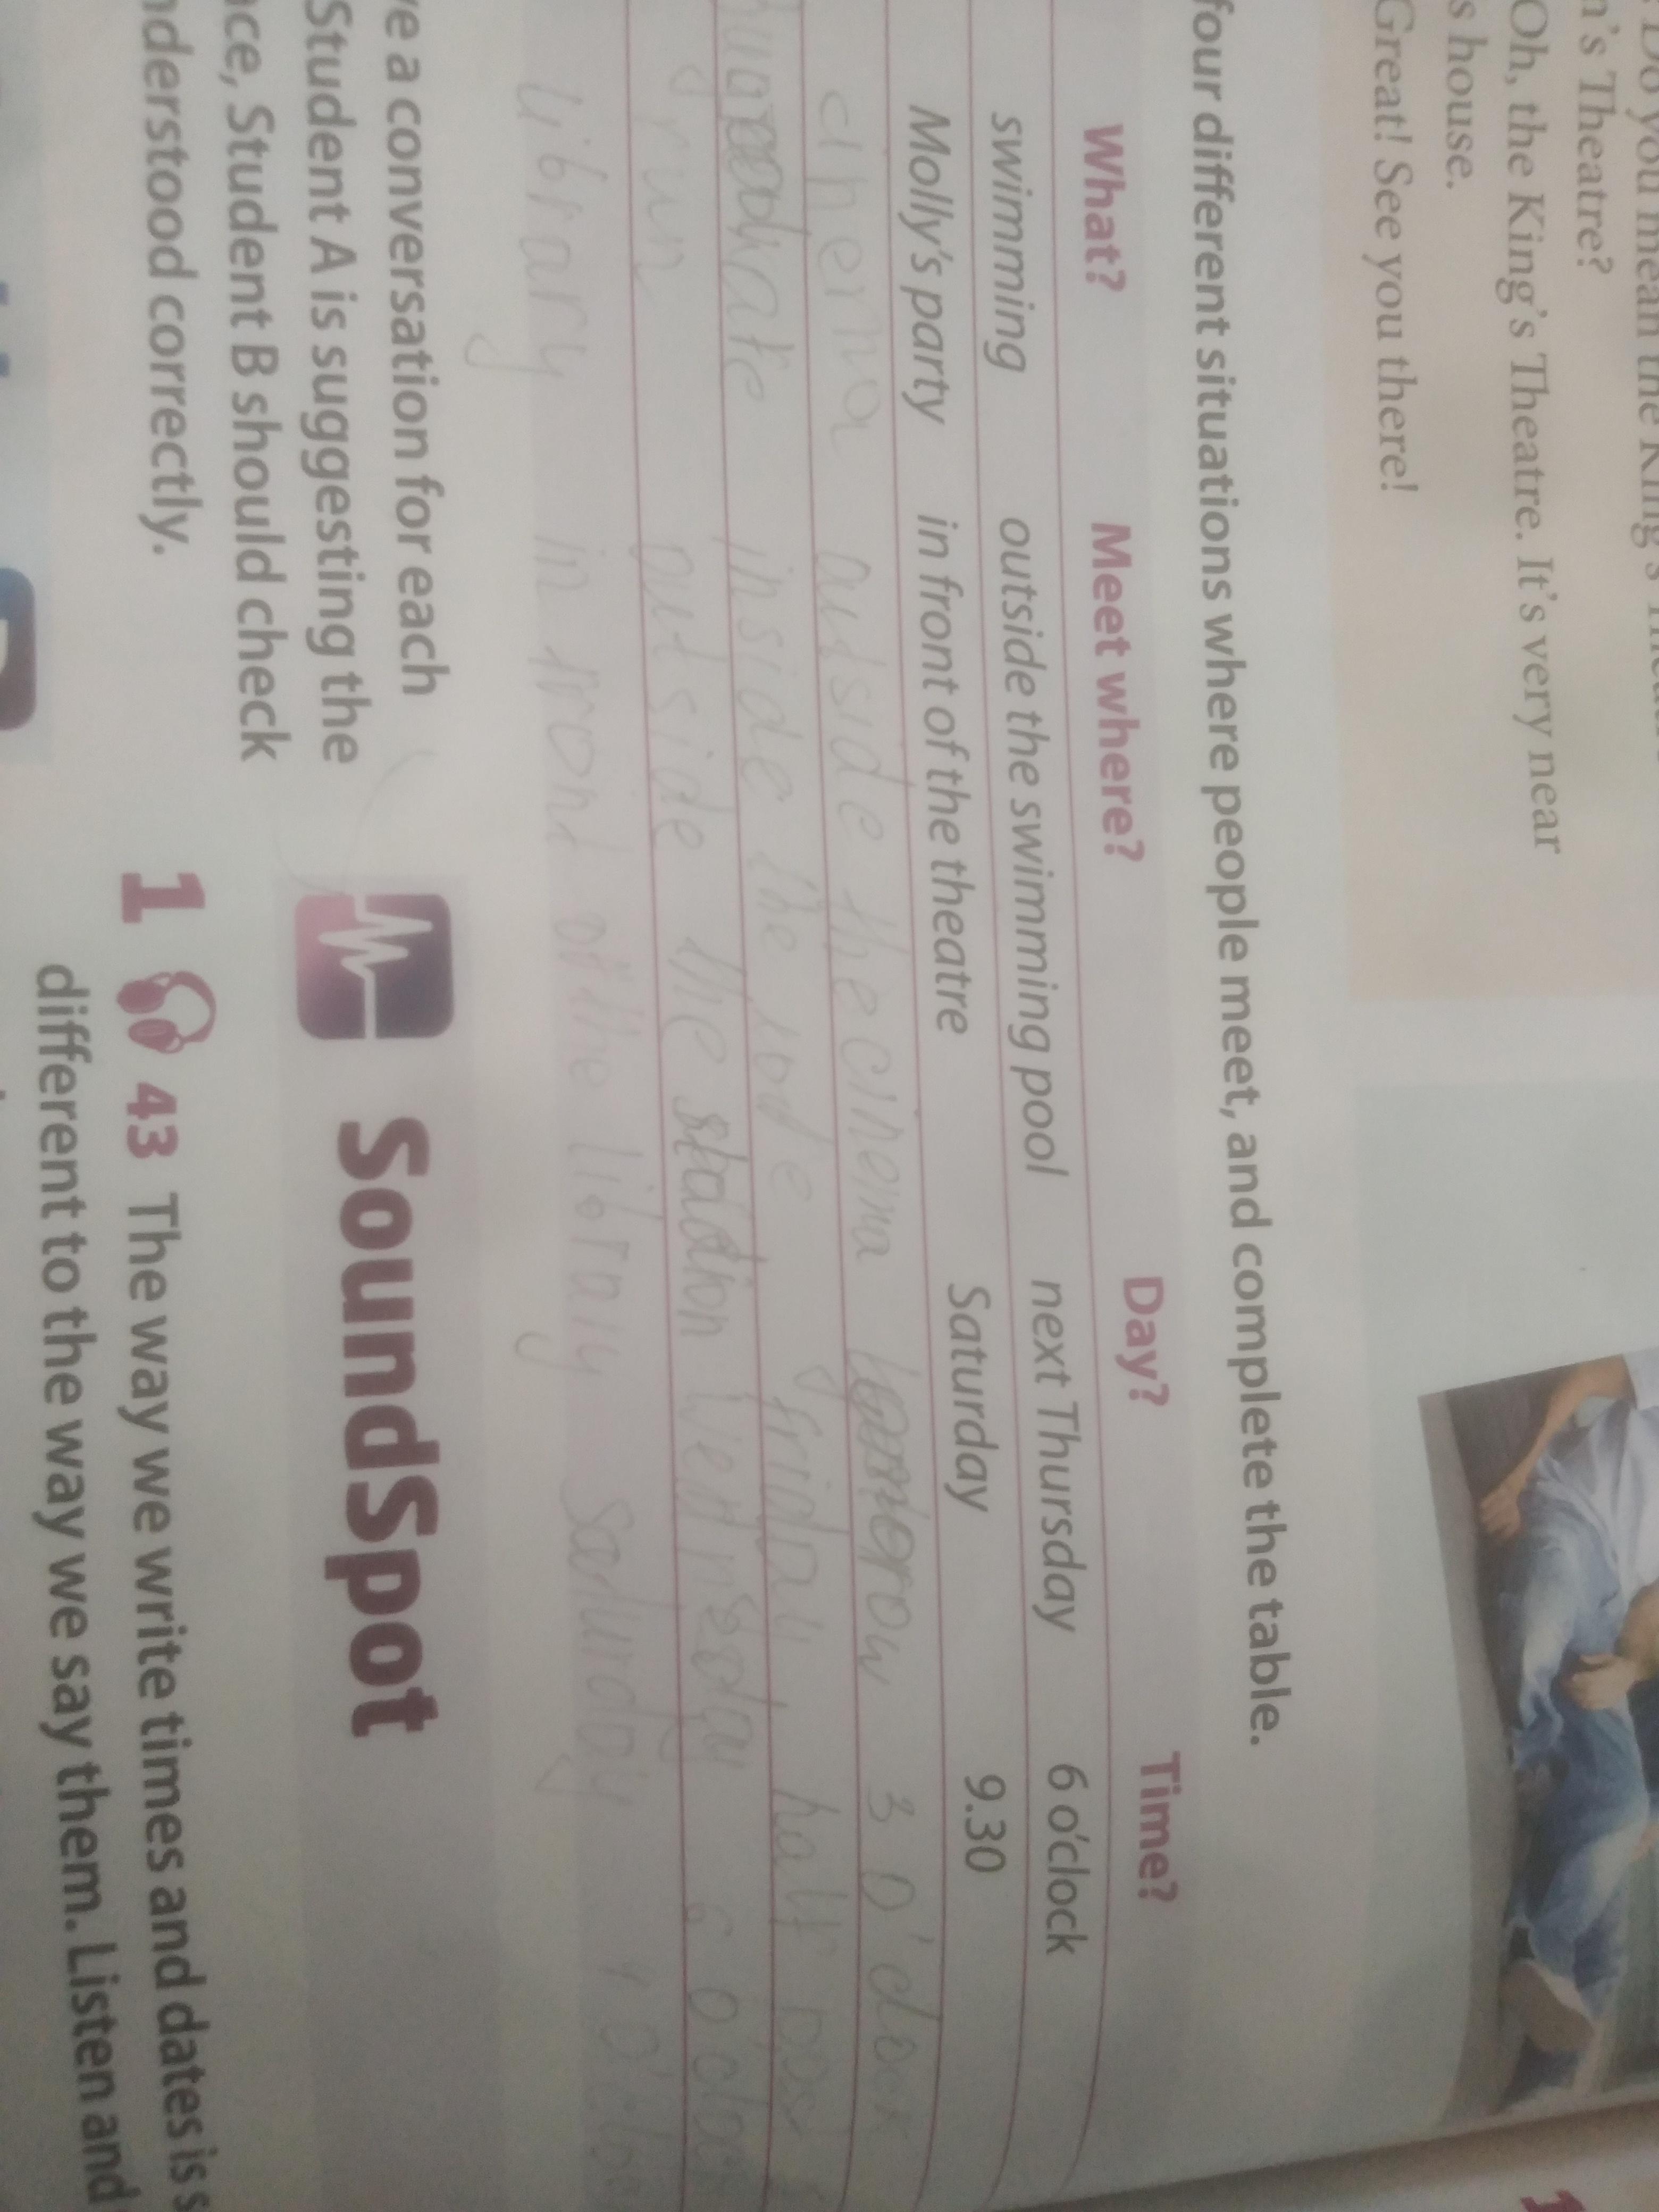 Do you mean the King's
n's Theatre?
Oh, the King's Theatre. It's very near
s house.
Great! See you there!
four different situations where people meet, and complete the table.
What? Meet where? Day? Time?
swimming outside the swimming pool next Thursday 6 o'clock
Molly's party in front of the theatre Saturday 9.30
cinema outside the cinema 3 o'clock
inside the friday half
run outside the 6 o'clock
library in front of the library
ve a conversation for each
Student A is suggesting the
ce, Student B should check
nderstood correctly.
SoundSpot
1 43 The way we write times and dates is s
different to the way we say them. Listen and